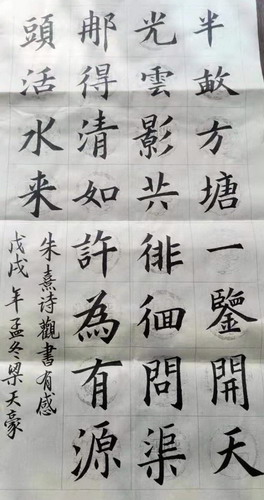 半畝方塘一鑒開天
光雲影共徘徊問渠
那得清如許為有源
頭活水来
朱熹诗觀書有感
戊戌年孟冬梁天豪